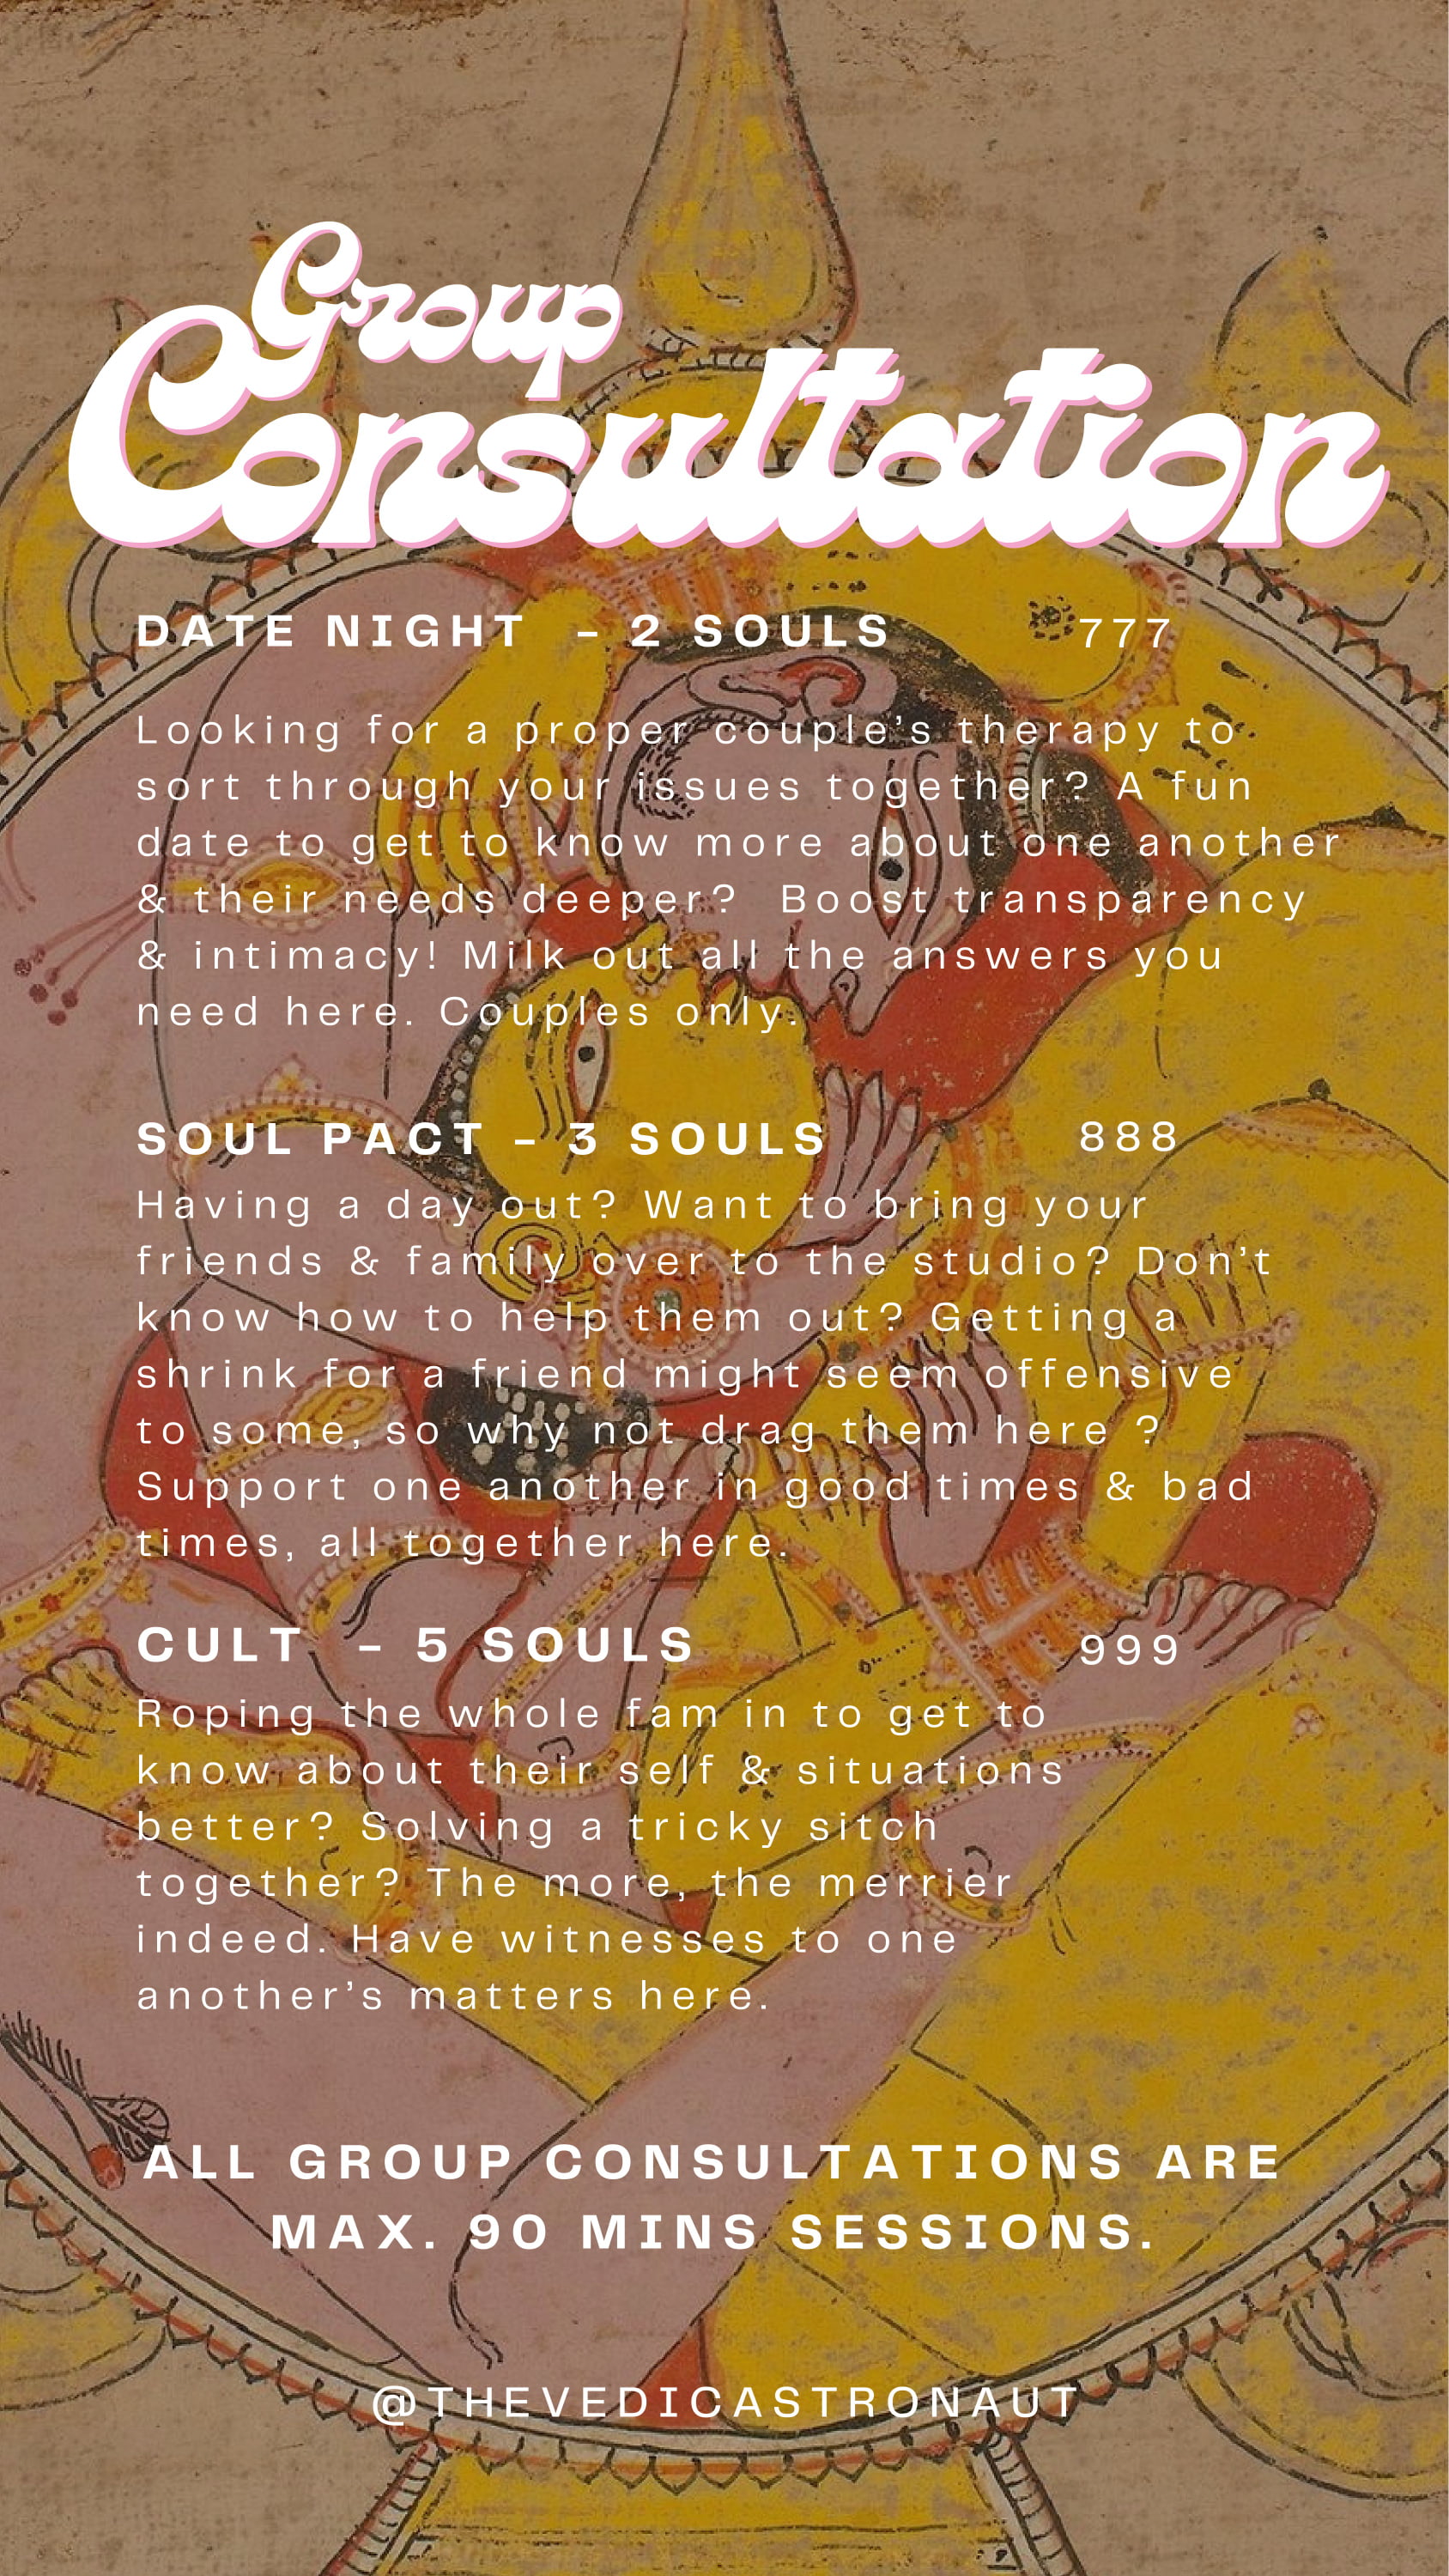 Group
Consultation
DATE NIGHT - 2 SOULS 777
Looking for a proper couple's therapy to
sort through your issues together? A fun
date to get to know more about one another
& their needs deeper? Boost transparency
& intimacy! Milk out all the answers you
need here. Couples only.
SOUL PACT - 3 SOULS 888
Having a day out? Want to bring your
friends & family over to the studio? Don't
know how to help them out? Getting a
shrink for a friend might seem offensive
to some, so why not drag them here ?
Support one another in good times & bad
times, all together here.
CULT - 5 SOULS 999
Roping the whole fam in to get to
know about their self & situations
better? Solving a tricky sitch
together? The more, the merrier
indeed. Have witnesses to one
another's matters here.
ALL GROUP CONSULTATIONS ARE
MAX. 90 MINS SESSIONS.
@THEVEDICASTRONAUT